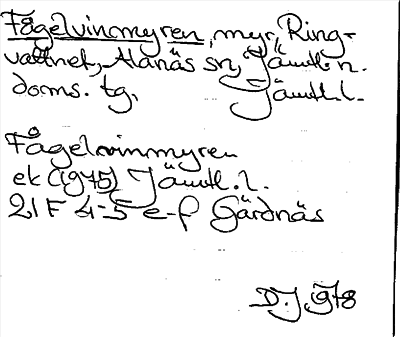 Fågelvinmyren, myr, Ring-
vattnet, Alanäs sn, Jämtl. n.
doms. tg, Jämtl. l.
Fågelvinmyren
ek (1975) Jämtl. l.
21F 4-5 e-f Gärdnäs
D.J. 1978